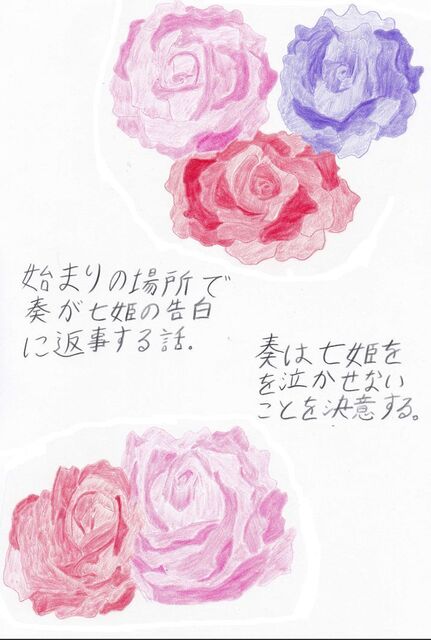 始まりの場所で
奏が七姫の告白
に返事する話.
奏は七姫を
を泣かせない
ことを決意する。